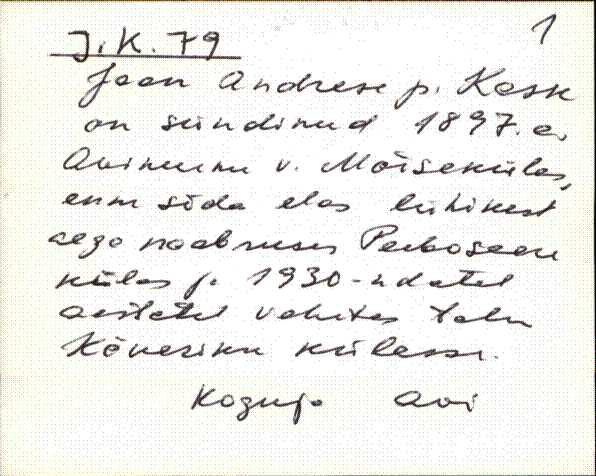 1
J.K. 79
Jaan Andrese p. Kask
on sündinud 1897. a.
Avinurme v. Mõisakülas,
enne sõda elas lühikest
aega naabruses Peebo
külas ja 1930-ndatel
aastatel vahetas talu
Kõveriku külasse.
Koguja Avi